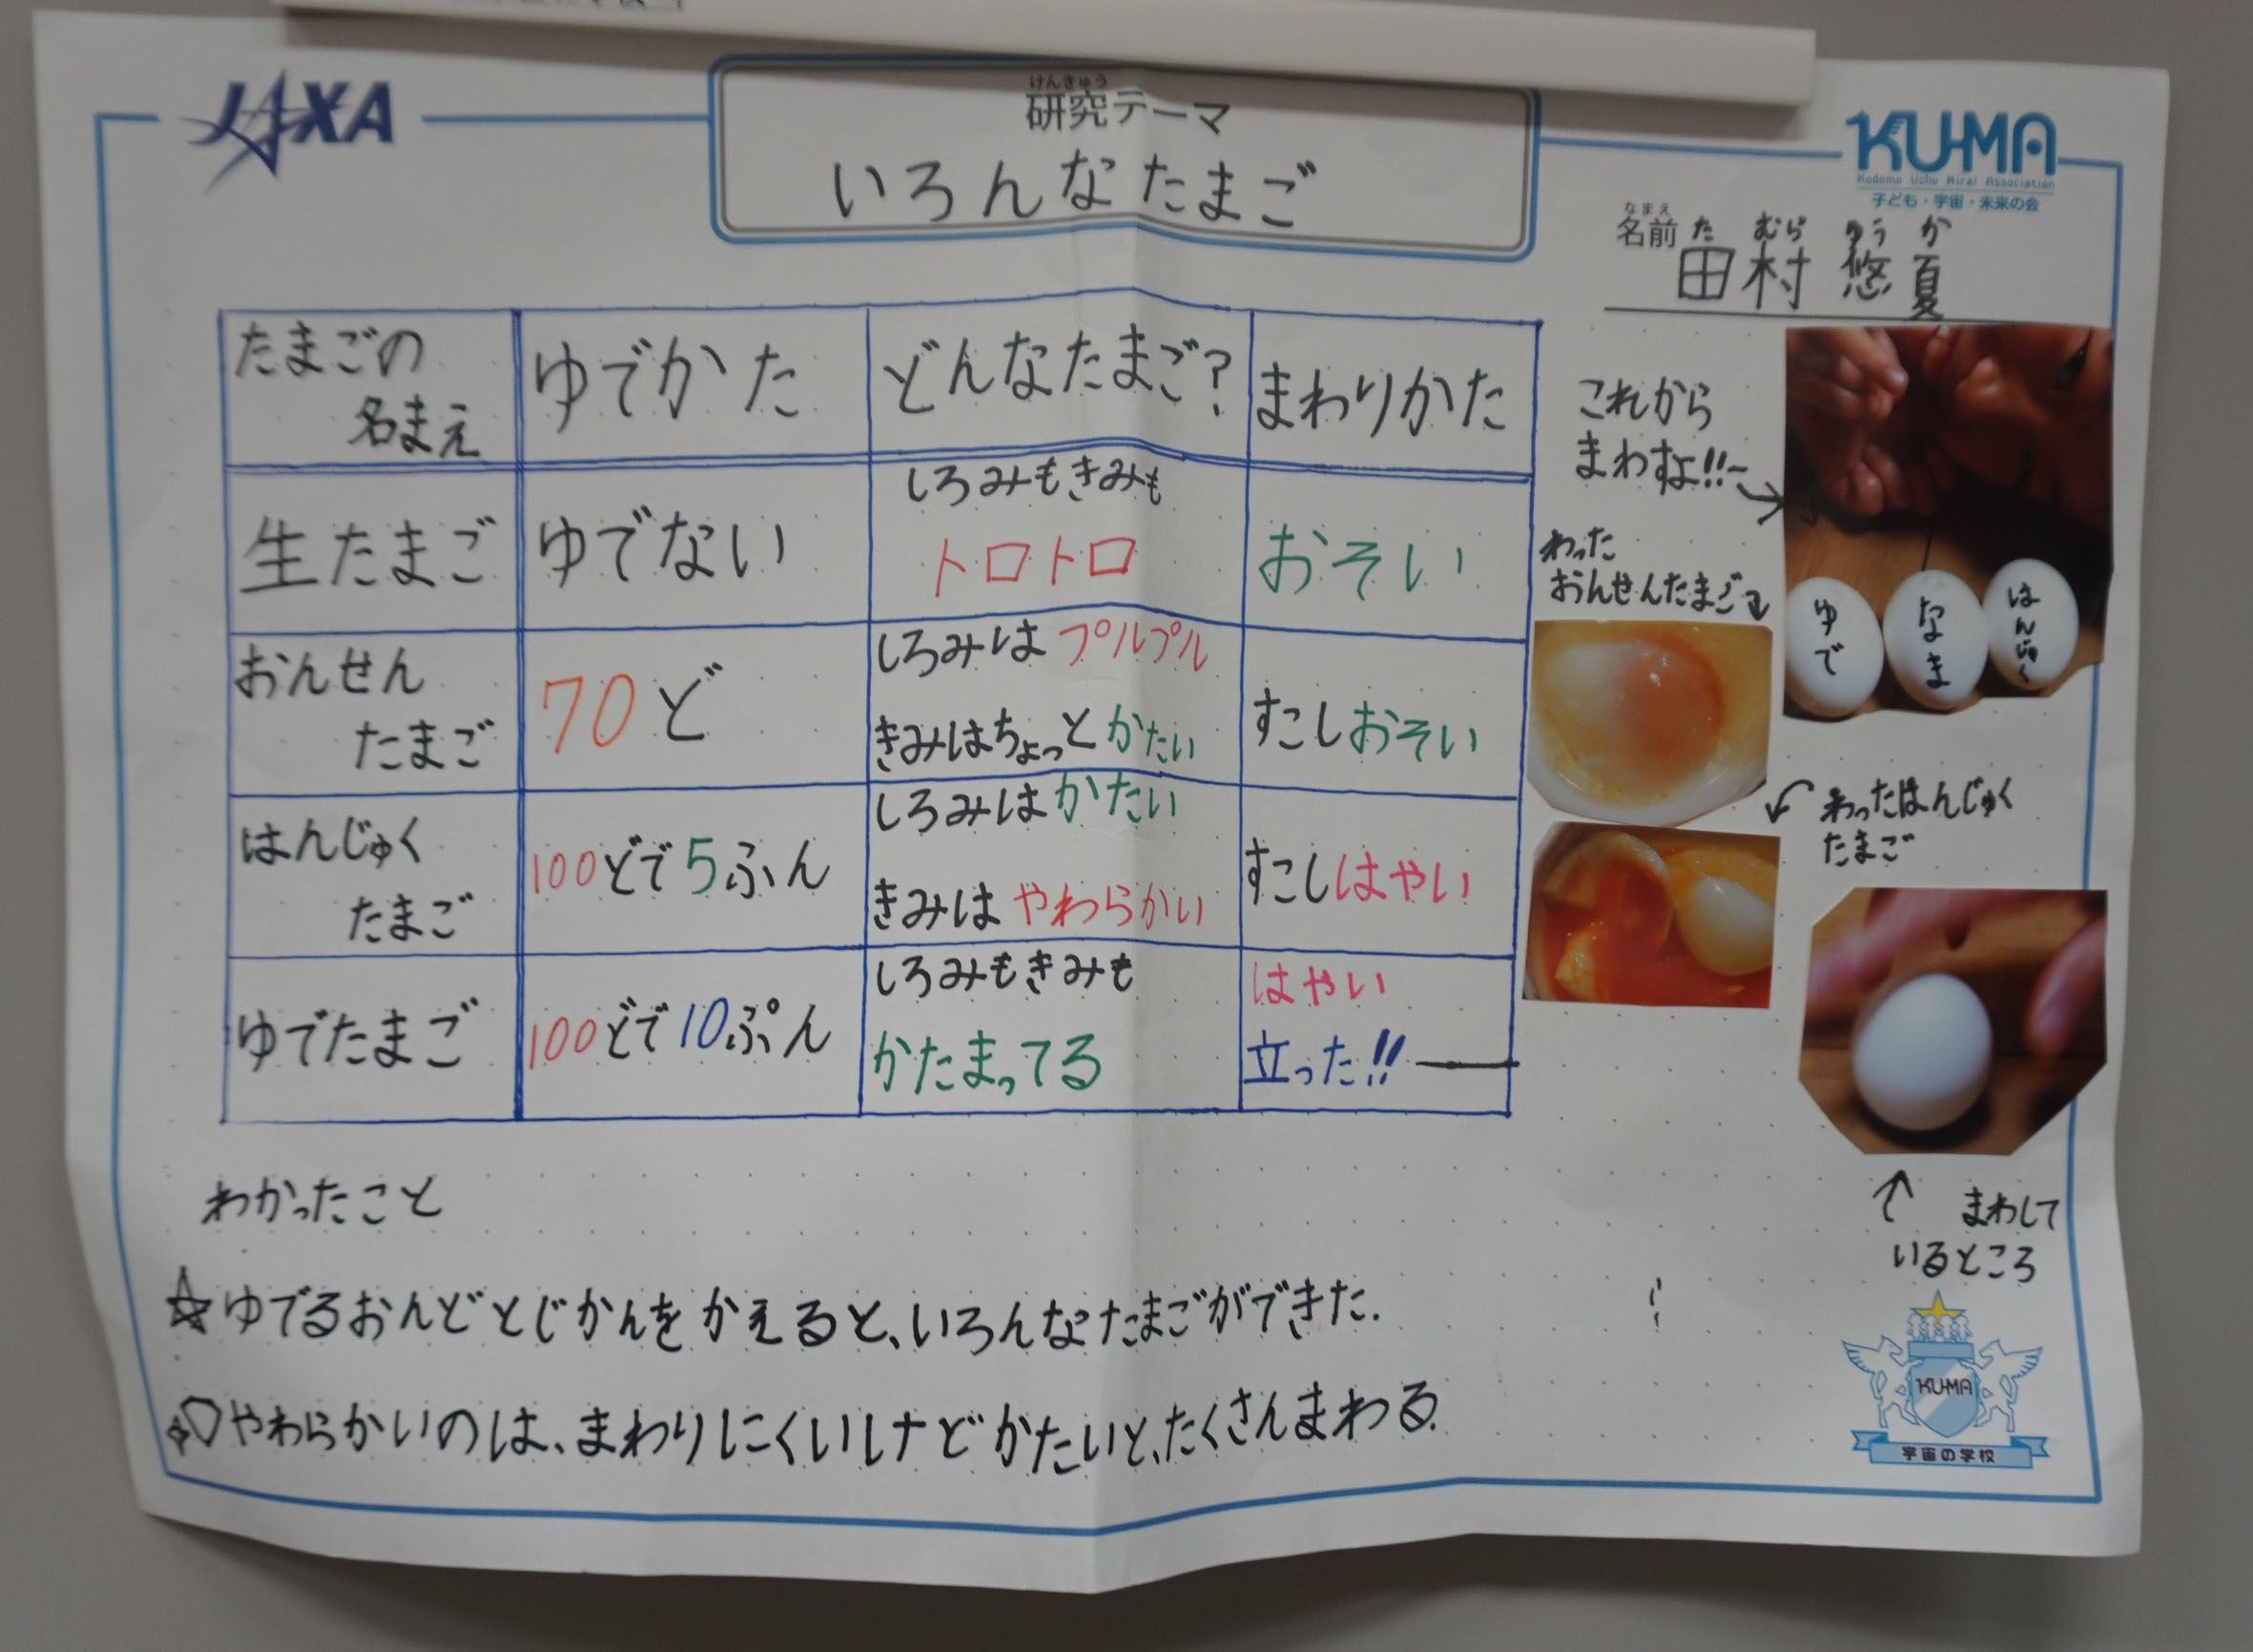 JAXA
けんきゅう
研究テーマ
いろんなたまご
KU-MA
Kodomo Uchu Mirai Association
子ども・宇宙・未来の会
なまえ
名前
た むら ゆう か
田村 悠夏
たまごの
名まえ
ゆでかた
どんなたまご?
まわりかた
生たまご
ゆでない
しろみもきみも
トロトロ
おそい
おんせん
たまご
70ど
しろみはプルプル
きみはちょっとかたい
すこしおそい
はんじゅく
たまご
100どで5ふん
しろみはかたい
きみはやわらかい
すこしはやい
ゆでたまご
100どで10ぷん
しろみもきみも
かたまってる
はやい
立った!!
これから
まわすよ!!
ゆで
なま
はんじゅく
わった
おんせんたまご
わったはんじゅく
たまご
まわして
いるところ
わかったこと
☆ゆでるおんどとじかんをかえると、いろんなたまごができた.
やわらかいのは、まわりにくいけどかたいと、たくさんまわる.
KU-MA
宇宙の学校